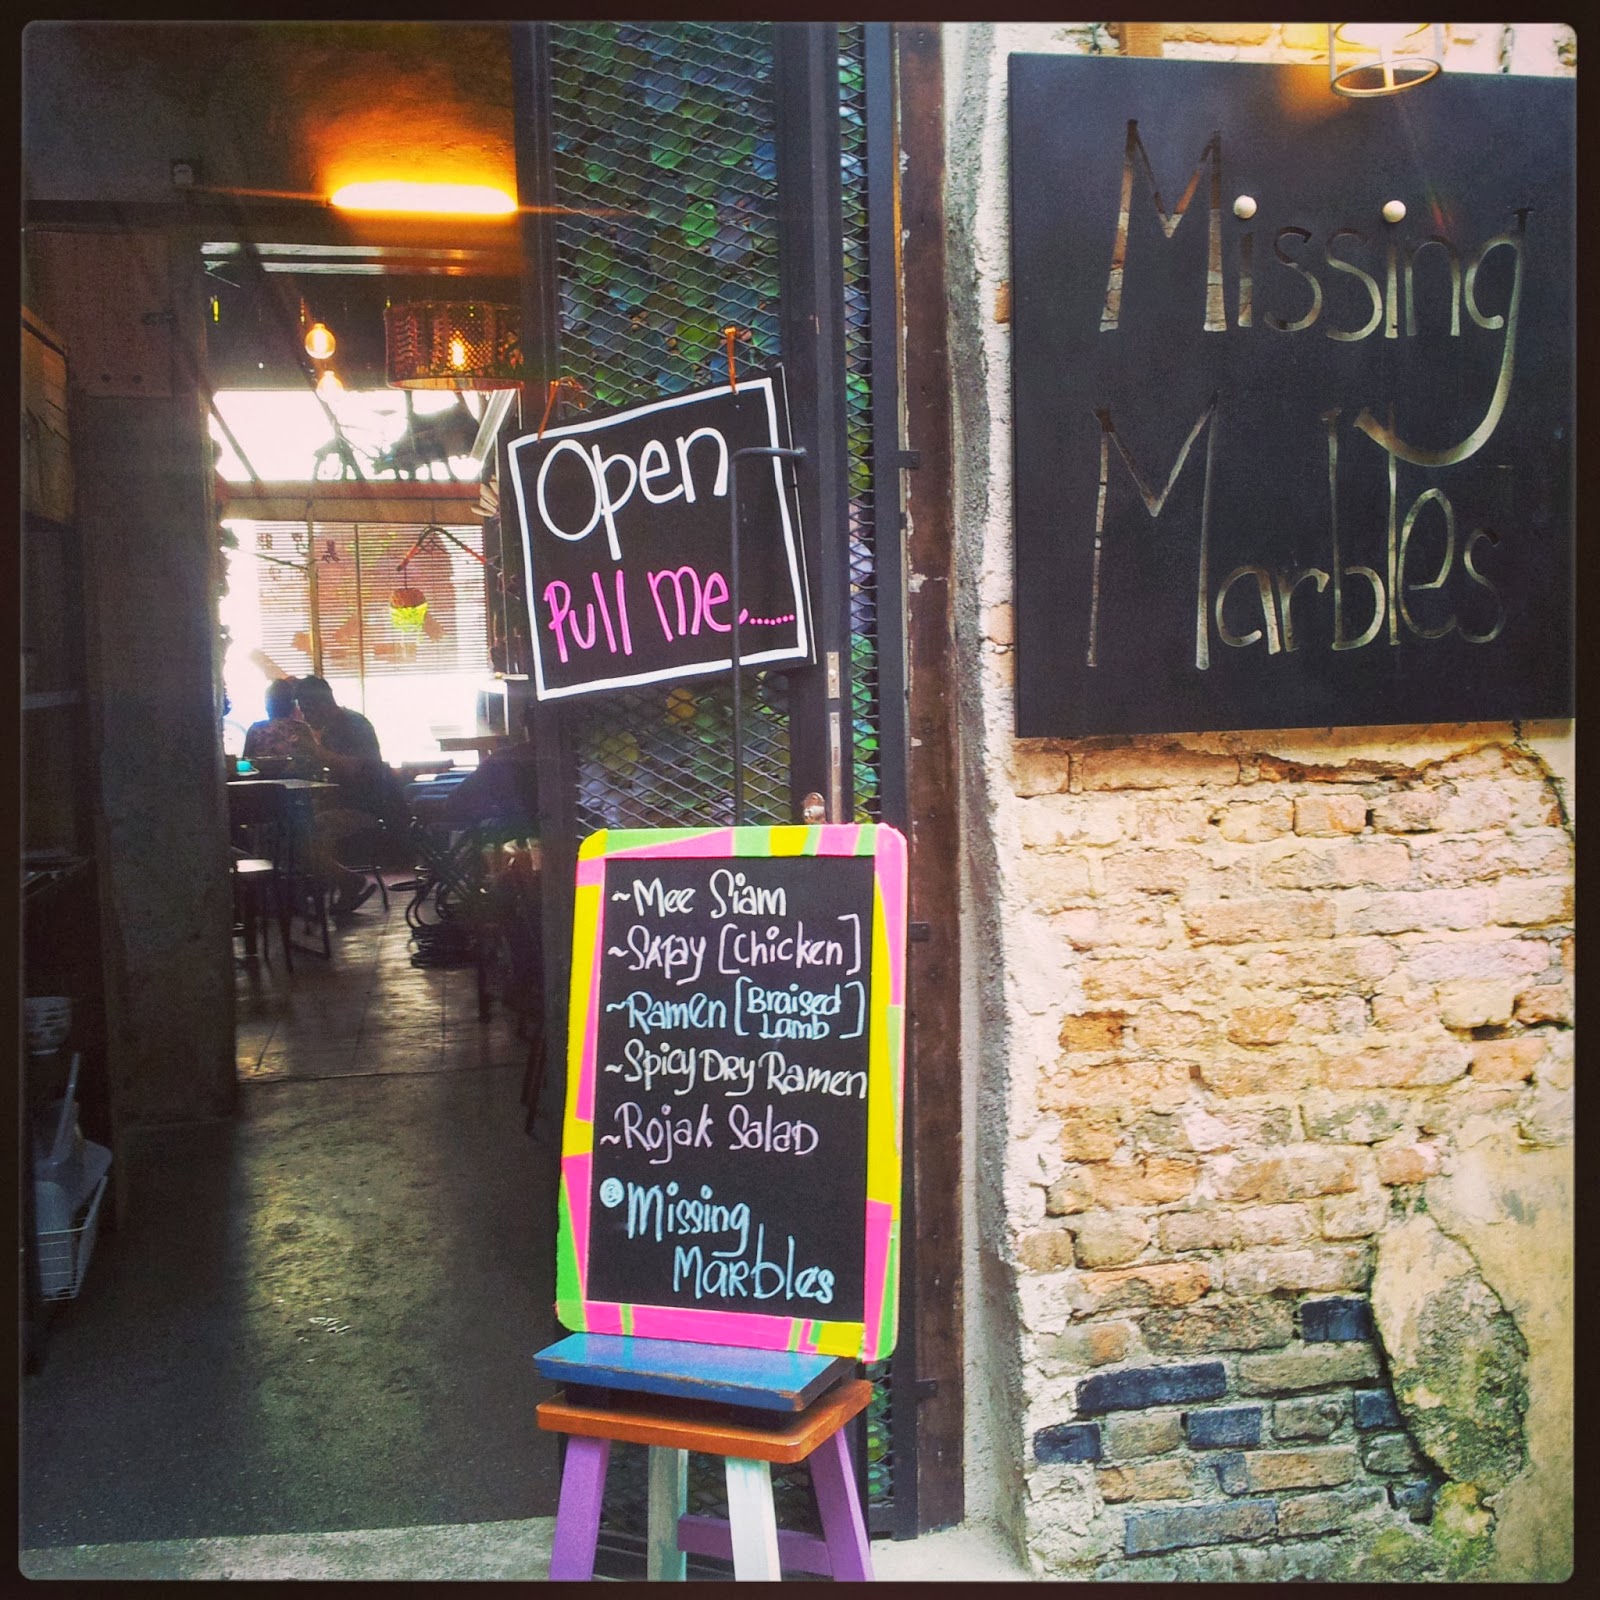 Missing
Marbles
Open
Pull Me.......
~Mee Siam
~Satay [Chicken]
~Ramen [Braised
Lamb]
~Spicy Dry Ramen
~Rojak Salad
Missing
Marbles